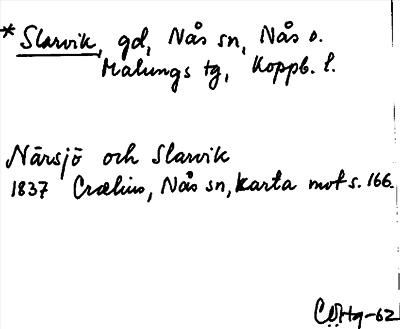 * Slarvik, gd, Nås sn, Nås o.
Malungs tg, Koppb. l.
Närsjö och Slarvik
1837 Crælius, Nås sn, karta mot s. 166.
CÖHg-62